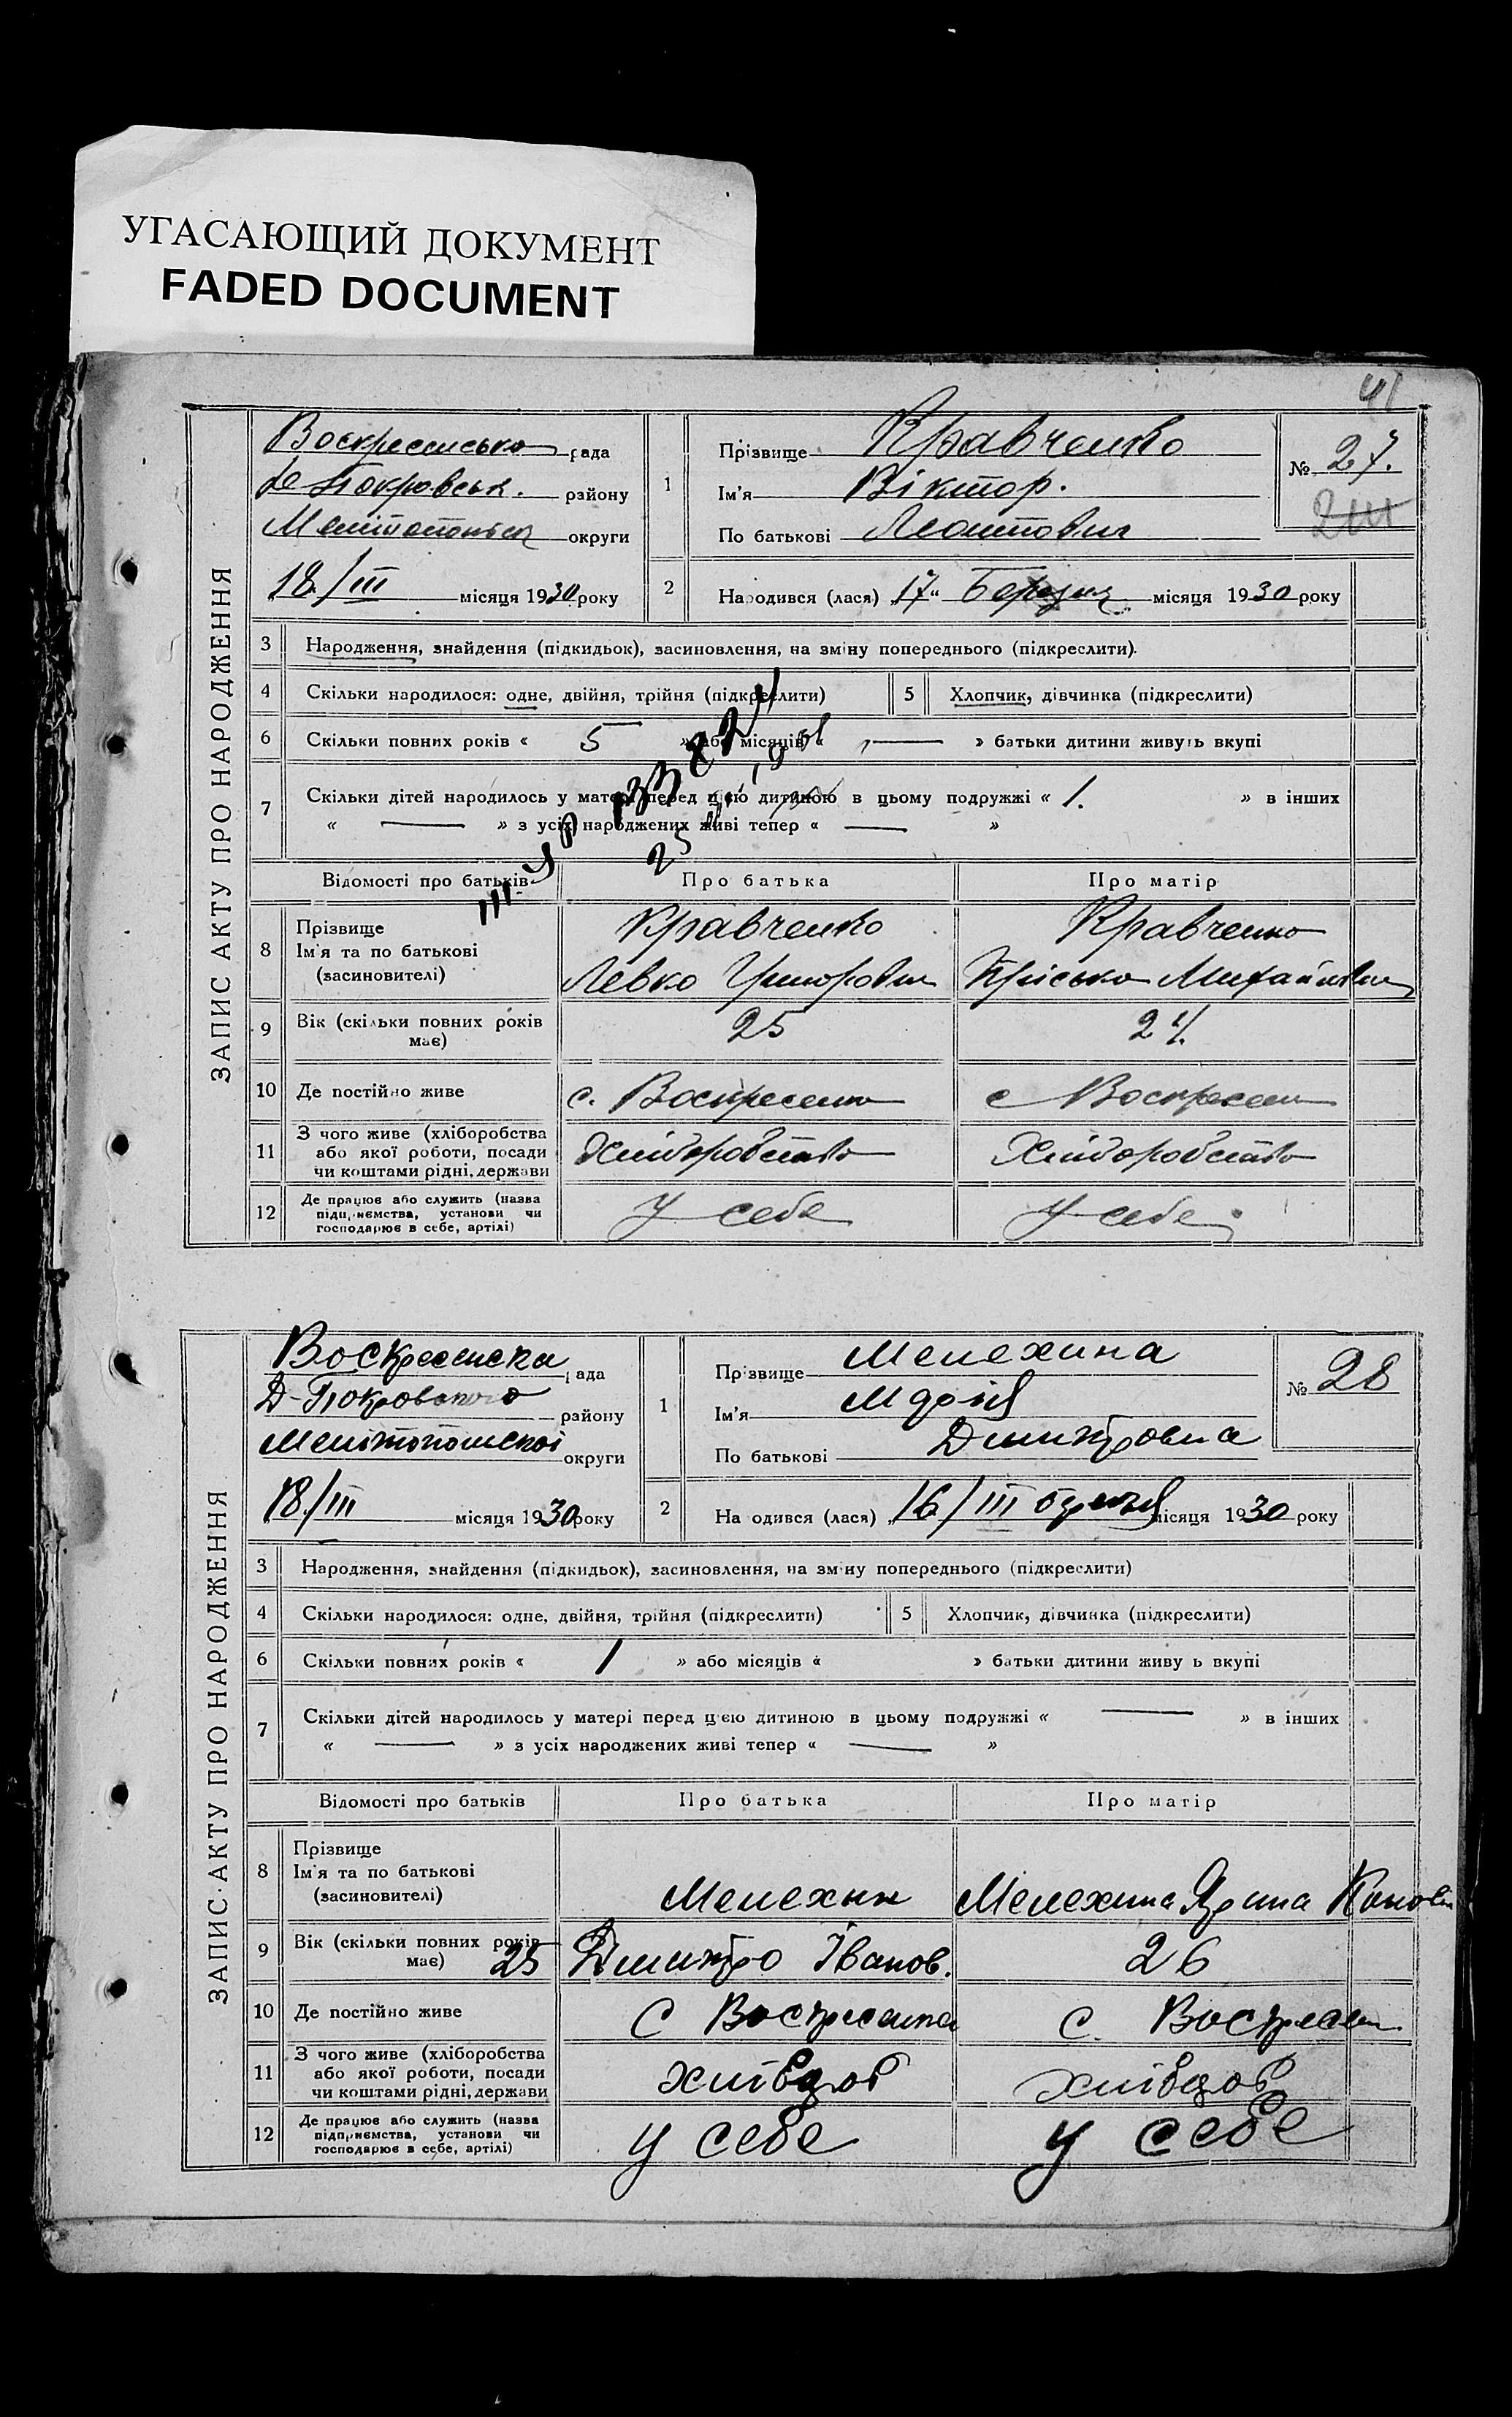 УГАСАЮЩИЙ ДОКУМЕНТ
FADED DOCUMENT
41
ЗАПИС АКТУ ПРО НАРОДЖЕННЯ
рада
району
округи
18/III місяця 1930 року
1
Прізвище Кравченко
Ім'я Віктор.
По батькові
№ 27.
2
Народився (лася) „17“ Березня місяця 1930 року
3 Народження, знайдення (підкидьок), засиновлення, на зміну попереднього (підкреслити).
4 Скільки народилося: одне, двійня, трійня (підкреслити)
5 Хлопчик, дівчинка (підкреслити)
6 Скільки повних років « 5 » або місяців « — » батьки дитини живуть вкупі
7 Скільки дітей народилось у матері перед цією дитиною в цьому подружжі « 1. » в інших
« — » з усіх народжених живі тепер « — »
Відомості про батьків
Про батька
Про матір
8 Прізвище
Ім'я та по батькові
(засновителі)
Кравченко
Левко Григорович
Кравченко
Пріська Михайловна
9 Вік (скільки повних років
має)
25
24.
10 Де постійно живе
с. Воскресенка
с Воскресен
11 З чого живе (хліборобства
або якої роботи, посади
чи коштами рідні, держави
Хліборобство
Хліборобство
12 Де працює або служить (назва
підприємства, установи чи
господарює в себе, артілі)
У себе
У себе
ЗАПИС АКТУ ПРО НАРОДЖЕННЯ
Воскресенска рада
Д-Покровского району
Мелітопольскої округи
18/III місяця 1930 року
1
Прізвище Мелехина
Ім'я Марія
По батькові Дмитровна
№ 28
2
На одився (лася) „16/III березня місяця 1930 року
3 Народження, знайдення (підкидьок), засиновлення, на зміну попереднього (підкреслити)
4 Скільки народилося: одне, двійня, трійня (підкреслити)
5 Хлопчик, дівчинка (підкреслити)
6 Скільки повних років « 1 » або місяців « » батьки дитини живу ь вкупі
7 Скільки дітей народилось у матері перед цією дитиною в цьому подружжі « — » в інших
« — » з усіх народжених живі тепер « — »
Відомості про батьків
Про батька
Про матір
8 Прізвище
Ім'я та по батькові
(засиновителі)
Мелехин
Мелехина Ярина
9 Вік (скільки повних років
має) 25
Дмитро Іванов.
26
10 Де постійно живе
С Воскресенка
С. Воскресен
11 З чого живе (хліборобства
або якої роботи, посади
чи коштами рідні, держави
хлібороб
хлібороб
12 Де працює або служить (назва
підприємства, установи чи
господарює в себе, артілі)
у себе
у себе